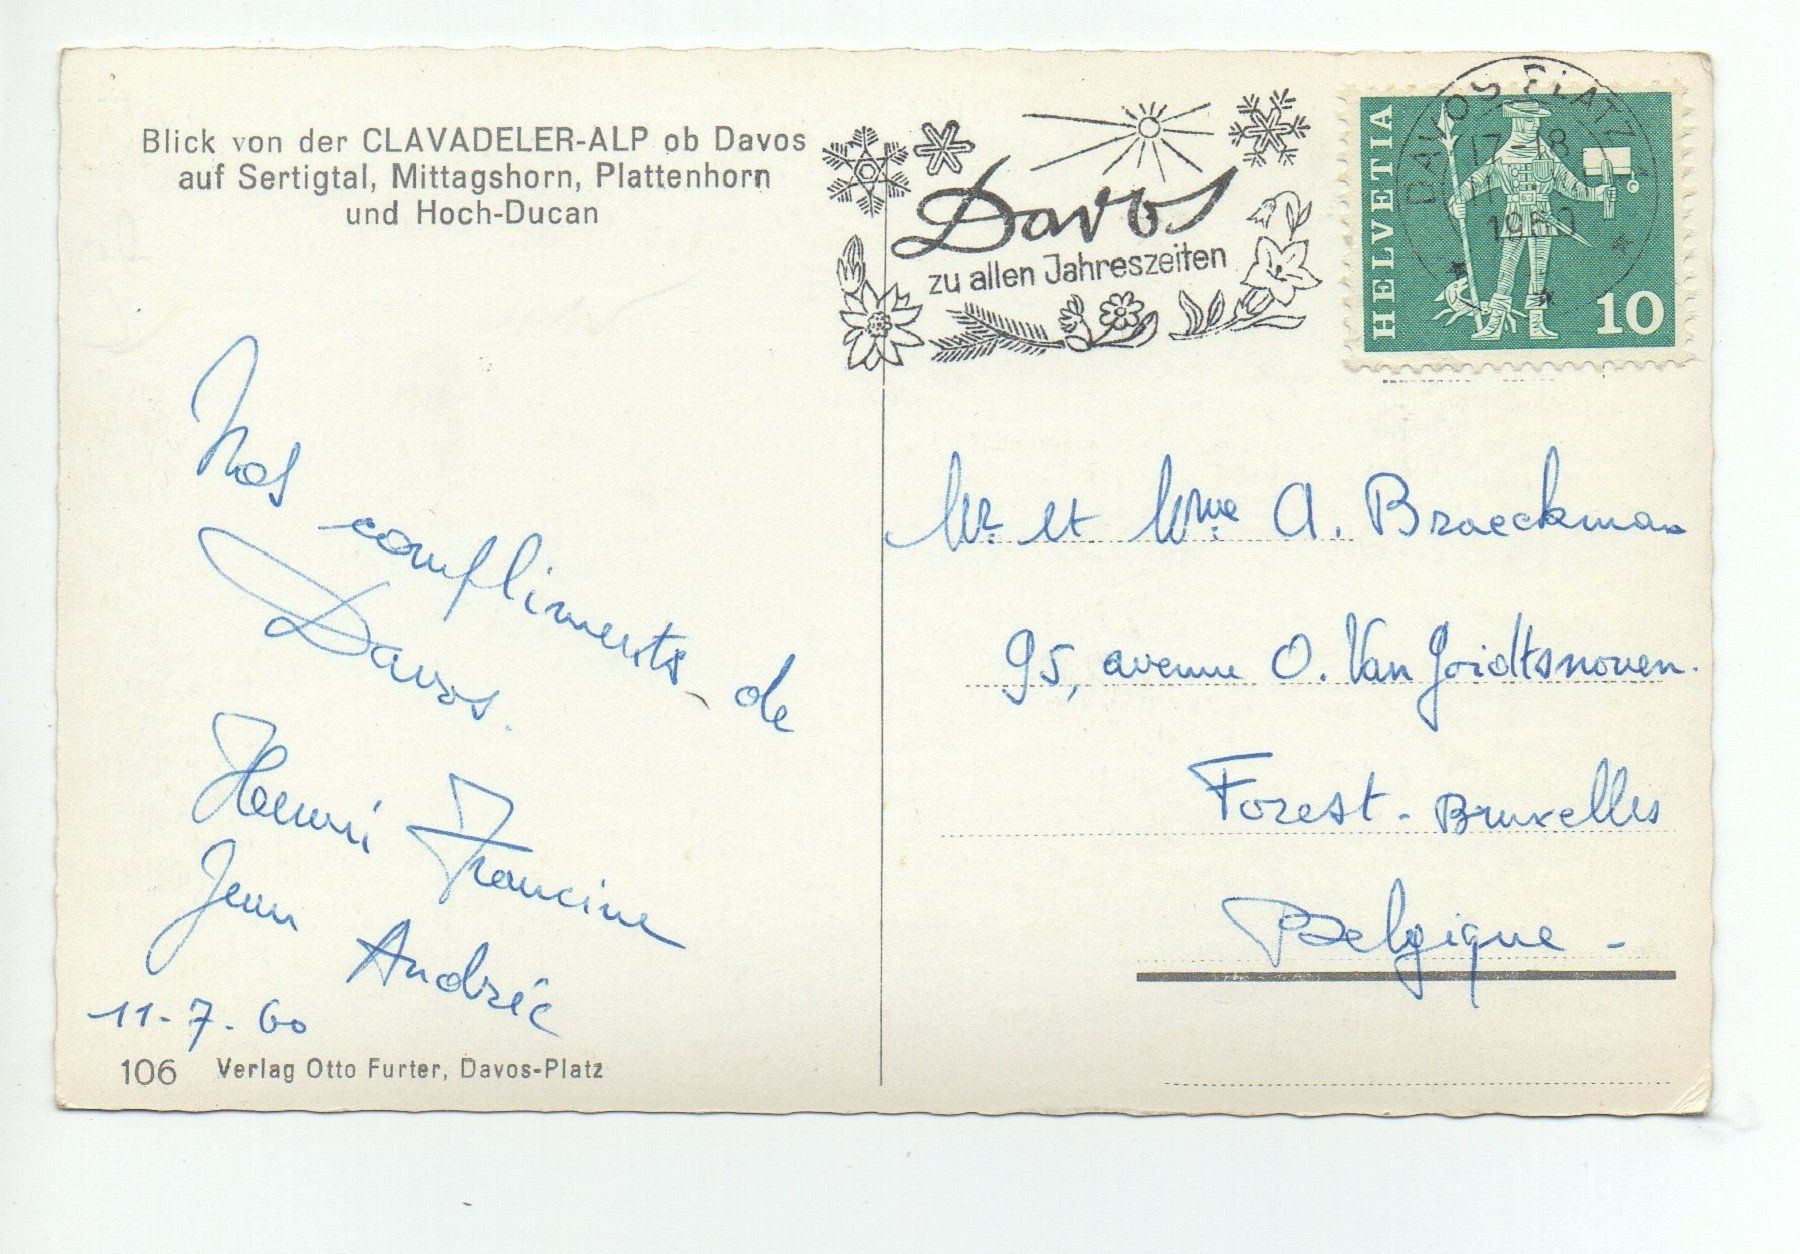 Blick von der CLAVADELER-ALP ob Davos
auf Sertigtal, Mittagshorn, Plattenhorn
und Hoch-Ducan
Davos
zu allen Jahreszeiten
DAVOS PLATZ 1
17-18
1960
HELVETIA
10
Nos compliments de
Davos.
Henri Francine
Jean André
11-7.60
106 Verlag Otto Furter, Davos-Platz
Mr. et Mme A. Braeckman
95, avenue O. Van Goidtsnoven.
Forest-Bruxelles
Belgique -